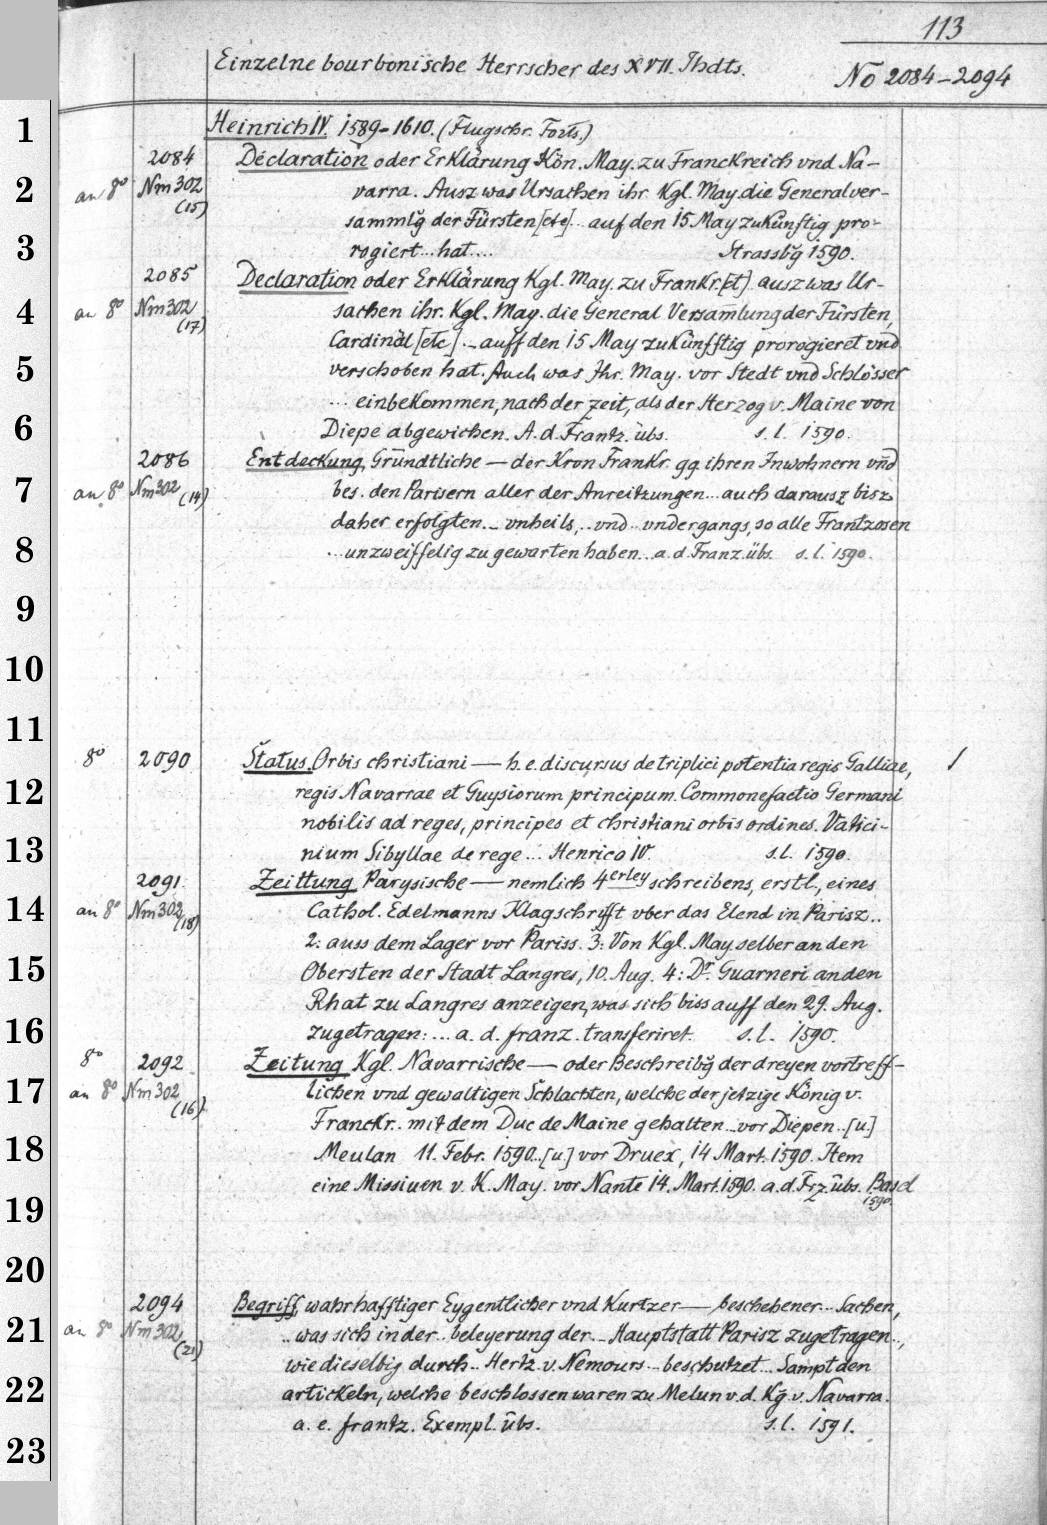 113
Einzelne bourbonische Herrscher des XVII. Jhdts.
No 2084-2094
1
Heinrich IV. 1589-1610. (Flugschr. Forts.)
2084 Déclaration oder Erklärung Kön. May. zu Franckreich vnd Na-
2
an 8º Nm 302 varra. Ausz was Ursachen ihr Kgl. May. die Generalver-
(15) sammlg der Fürsten [etc] .. auf den 15 May zukünftig pro-
3
rogiert ... hat .... Strassbg 1590.
2085 Declaration oder Erklärung Kgl. May. zu Frankr. [et] ausz was Ur-
4
an 8º Nm 302 sachen ihr. Kgl. May. die General Versamlung der Fürsten,
(17) Cardinäl [etc] .. auff den 15 May zukünfftig prorogieret vnd
5
verschoben hat. Auch was Ihr. May. vor Stedt vnd Schlösser
... einbekommen, nach der zeit, als der Herzog v. Maine von
6
Diepe abgewichen. A. d. Frantz. übs. s. l. 1590.
2086 Entdeckung, Gründtliche — der Kron Frankr. gg. ihren Inwohnern vnd
7
an 8º Nm 302 (14) bes. den Parisern aller der Anreitzungen ... auch darausz bisz
daher erfolgten .. vnheils, .. vnd .. vndergangs, so alle Frantzosen
8
... unzweiffelig zu gewarten haben... a. d. Franz. übs. s. l. 1590.
9
10
11
8º 2090 Status Orbis christiani — h. e. discursus de triplici potentia regis Galliae, /
12
regis Navarrae et Guysiorum principum. Commonefactio Germani
nobilis ad reges, principes et christiani orbis ordines. Vatici-
13
nium Sibyllae de rege ... Henrico IV. s. l. 1590.
2091 Zeittung Parysische — nemlich 4erley schreibens, erstl., eines
14
an 8º Nm 302 (18) Cathol. Edelmanns Klagschrifft vber das Elend in Parisz..
2: auss dem Lager vor Pariss. 3: Von Kgl. May. selber an den
15
Obersten der Stadt Langres, 10. Aug. 4: Dr. Guarneri an den
Rhat zu Langres anzeigen, was sich biss auff den 29. Aug.
16
zugetragen: ... a. d. franz. transferiret. s. l. 1590.
8º 2092 Zeitung Kgl. Navarrische — oder Beschreibg der dreyen vortreff-
17
an 8º Nm 302 lichen vnd gewaltigen Schlachten, welche der jetzige König v.
(16) Franckr.. mit dem Duc de Maine gehalten .. vor Diepen .. [u.]
18
Meulan 11. Febr. 1590 .. [u.] vor Druex, 14 Mart. 1590. Item
eine Missiuen v. K. May. vor Nante 14. Mart. 1590. a. d. Frz. übs. Basel
19
1590.
20
2094 Begriff, wahrhafftiger Eygentlicher vnd Kurtzer — beschehener ... Sachen,
21
an 8º Nm 302 .. was sich in der .. beleyerung der .. Hauptstatt Parisz zugetragen ..,
(21) wie dieselbig durch .. Hertz. v. Nemours .. beschutzet ... Sampt den
22
artickeln, welche beschlossen waren zu Melun v. d. Kg. v. Navarra.
a. e. frantz. Exempl. übs. s. l. 1591.
23